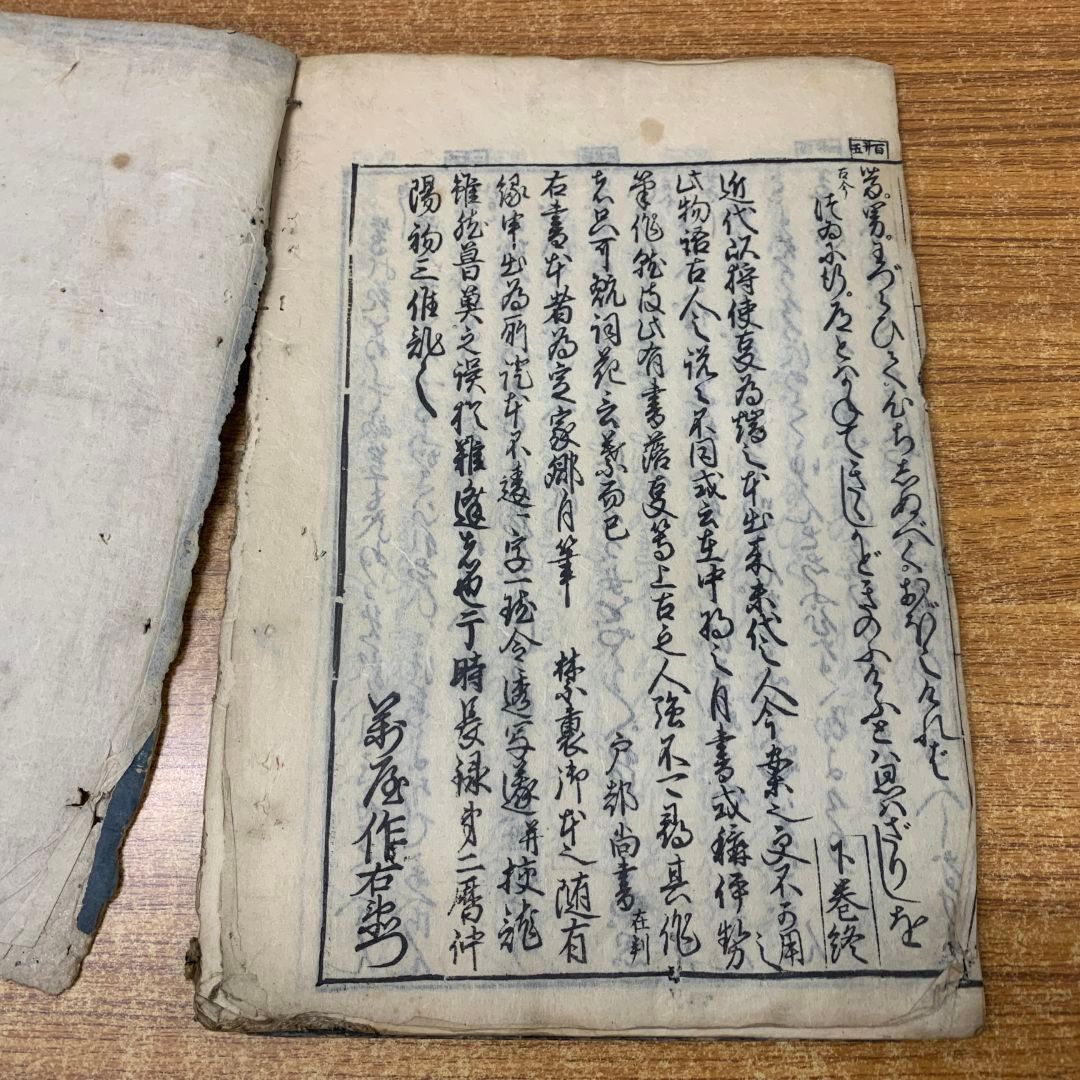 百廿五
昔。男。わづらひて心ちしぬべくおぼえければ
古今 つゐに行。道とはかねてきゝしかどきのふけふとは思はざりしを
下巻終
近代以狩使事為端之本出来末代之人今案之更不可用之
此物語古人之説々不同或云在中将之自書或称伊勢
筆作就彼此有書落事等上古之人強不可尋其作
者只可翫詞花言葉而已
戸部尚書 在判
右書本者為定家卿自筆 禁裏御本之随有
縁申出為所 本不違一字一 令透写遂并挍訖
雖然 之誤猶難 者也于時長禄第二暦仲
陽初三
萬屋作右衛門